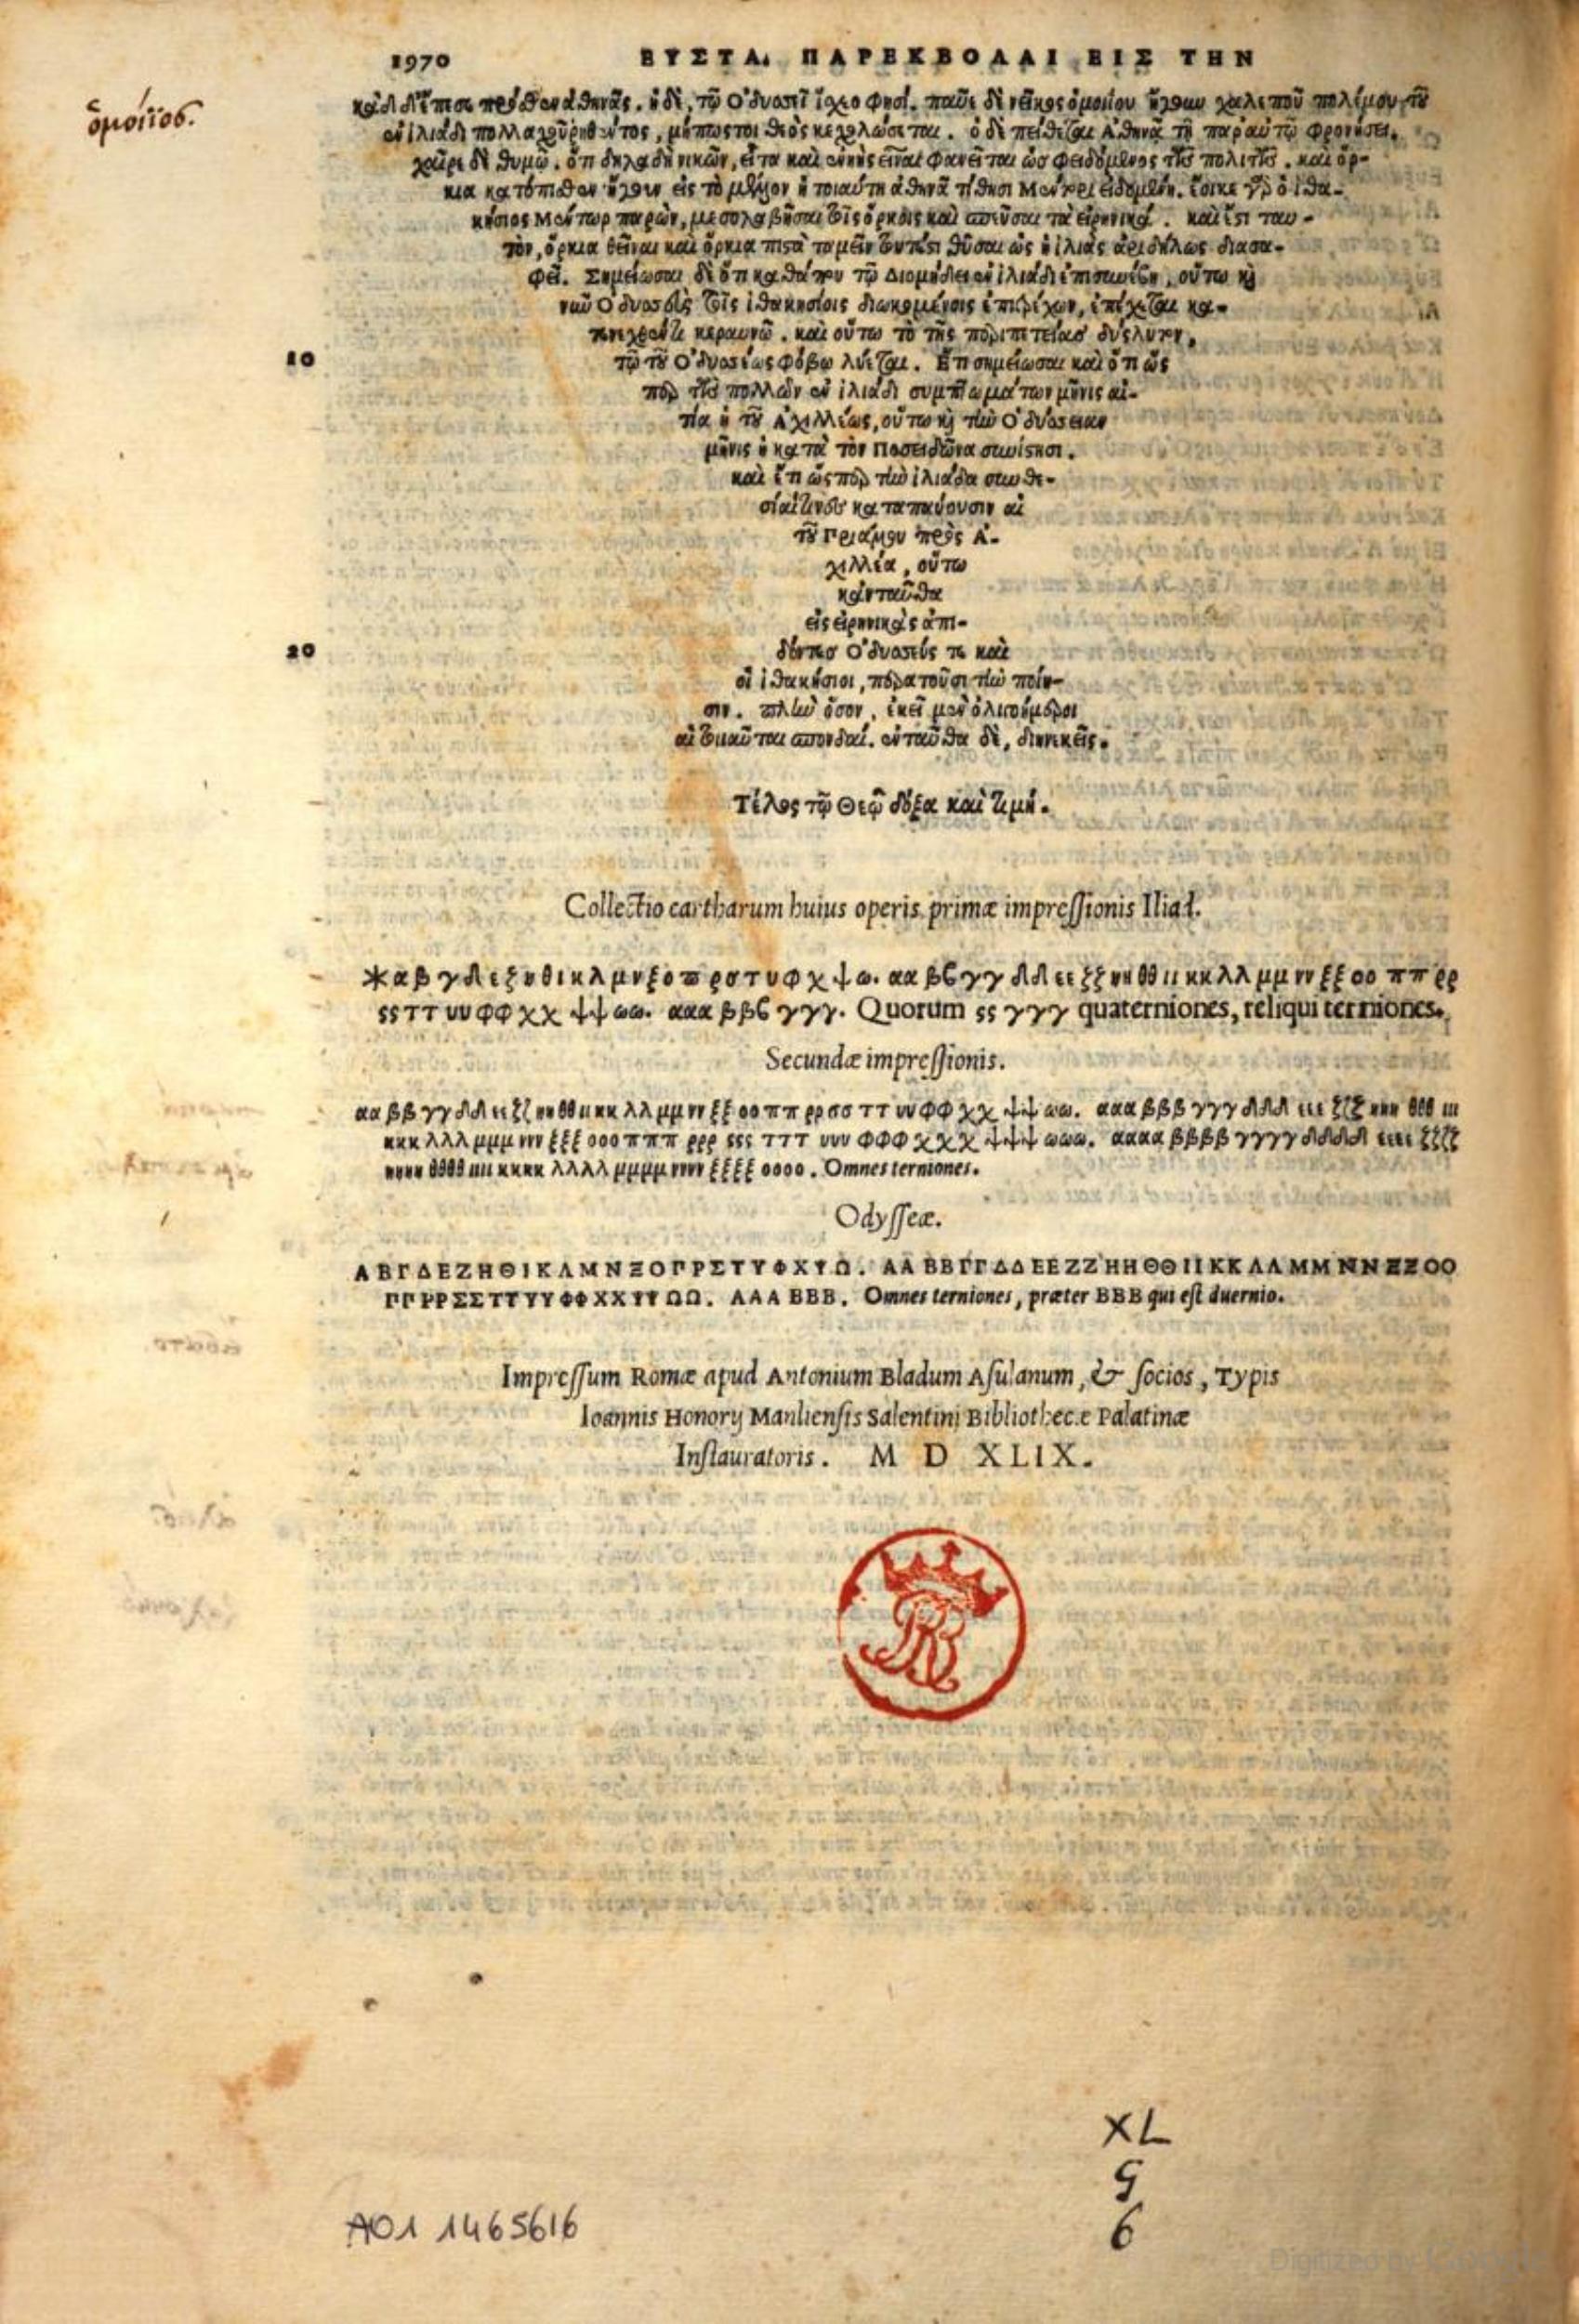 1970 ΕΥΣΤΑ. ΠΑΡΕΚΒΟΛΑΙ ΕΙΣ ΤΗΝ
ὁμοίϊος.
κὰδ δ' ἔπεσε πρόσθεν ἀθηνᾶς. ἡ δὲ, τῷ Ὀδυσσεῖ ἴσχεο φησί. παῦε δὲ νεῖκος ὁμοιίου ἤγουν χαλεποῦ πολέμου, τοῦ
ἐν ἰλιάδι πολλαχοῦ ῥηθέντος, μήπως τοι θεὸς κεχολώσεται. ὁ δὲ πείθεται Ἀθηνᾷ τῇ παρ' αὑτῷ φρονήσει.
χαῖρε δὲ θυμῷ. ὅτι δηλαδὴ νικῶν, εἶτα καὶ φανεῖται ὡς φειδόμενος τῶν πολιτῶν. καὶ ὅρ-
κια κατόπισθεν ἤγουν εἰς τὸ μέλλον ἡ τοιαύτη ἀθηνᾶ τίθησι Μέντορι εἰδομένη. ἔοικε γὰρ ὁ ἰθα-
κήσιος Μέντωρ παρὼν, μεσολαβῆσαι τοῖς ὅρκοις καὶ σπεῦσαι τὰ εἰρηνικά. καὶ ἔστι ταυ-
τὸν, ὅρκια θεῖναι καὶ ὅρκια πιστὰ ταμεῖν τουτέστι θῦσαι ὡς ἡ ἰλιὰς ἀριδήλως διασα-
φεῖ. Σημείωσαι δὲ ὅτι καθάπερ τῷ Διομήδει ἐν ἰλιάδι ἐπισυνέβη, οὕτω καὶ
νῦν Ὀδυσσεὺς τοῖς ἰθακησίοις διωκομένοις ἐπιτρέχων, ἐπέχεται κα-
πνιχθέντι κεραυνῷ. καὶ οὕτω τὸ τῆς περιπετείας δύσλυτον,
10 τῷ τοῦ Ὀδυσσέως φόβῳ λύεται. Ἔτι σημείωσαι καὶ ὅτι ὥς
περ τῶν πολλῶν ἐν ἰλιάδι συμπτωμάτων μῆνις αἰ-
τία ἡ τοῦ Ἀχιλλέως, οὕτω καὶ τὴν Ὀδύσσειαν
μῆνις ἡ κατὰ τὸν Ποσειδῶνα συνίστησι.
καὶ ἔτι ὥσπερ τὴν ἰλιάδα συνθε-
σίαι τινὲς καταπαύουσιν αἱ
τοῦ Πριάμου πρὸς Ἀ-
χιλλέα, οὕτω
κἀνταῦθα
εἰς εἰρηνικὰς ἀπι-
20 δόντες Ὀδυσσεύς τε καὶ
οἱ ἰθακήσιοι, περατοῦσι τὴν ποίη-
σιν. πλὴν ὅσον, ἐκεῖ μὲν ὀλιγοήμεροι
αἱ τοιαῦται σπονδαί. ἐνταῦθα δὲ, διηνεκεῖς.
Τέλος τῷ Θεῷ δόξα καὶ τιμή.
Collectio cartharum huius operis primæ impressionis Iliad.
*αβγδεζηθικλμνξοπρστυφχψω. αα βϐ γγ δδ εε ζζ ηη θθ ιι κκ λλ μμ νν ξξ οο ππ ρρ
ςς ττ υυ φφ χχ ψψ ωω. ααα ββϐ γγγ. Quorum ςς γγγ quaterniones, reliqui terniones.
Secundæ impressionis.
αα ββ γγ δδ εε ζζ ηη θθ ιι κκ λλ μμ νν ξξ οο ππ ρρ σσ ττ υυ φφ χχ ψψ ωω. ααα βββ γγγ δδδ εεε ζζζ ηηη θθθ ιιι
κκκ λλλ μμμ ννν ξξξ οοο πππ ρρρ ςςς τττ υυυ φφφ χχχ ψψψ ωωω. αααα ββββ γγγγ δδδδ εεεε ζζζζ
ηηηη θθθθ ιιιι κκκκ λλλλ μμμμ νννν ξξξξ οοοο. Omnes terniones.
Odysseæ.
ΑΒΓΔΕΖΗΘΙΚΛΜΝΞΟΠΡΣΤΥΦΧΨΩ. ΑΑ ΒΒ ΓΓ ΔΔ ΕΕ ΖΖ ΗΗ ΘΘ ΙΙ ΚΚ ΛΛ ΜΜ ΝΝ ΞΞ ΟΟ
ΠΠ ΡΡ ΣΣ ΤΤ ΥΥ ΦΦ ΧΧ ΨΨ ΩΩ. ΑΑΑ ΒΒΒ. Omnes terniones, præter BBB qui est duernio.
Impressum Romæ apud Antonium Bladum Asulanum, & socios, Typis
Ioannis Honorij Manliensis Salentini Bibliothecæ Palatinæ
Instauratoris. M D XLIX.
XL
5
6
A01 1465616
Digitized by Google